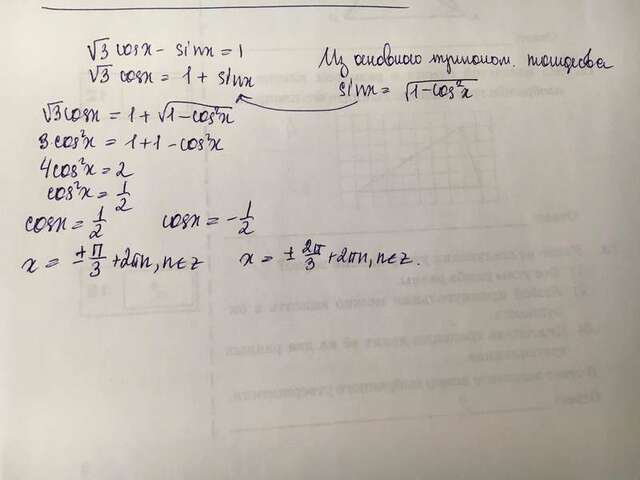 √3 cosx - sinx = 1
√3 cosx = 1 + sinx
Из основного тригоном. тождества
sinx = √1-cos²x
√3 cosx = 1 + √1-cos²x
3·cos²x = 1+1-cos²x
4cos²x = 2
cos²x = 1/2
cosx = 1/2 cosx = -1/2
x = ±π/3 + 2πn, n∈z x = ± 2π/3 + 2πn, n∈z.